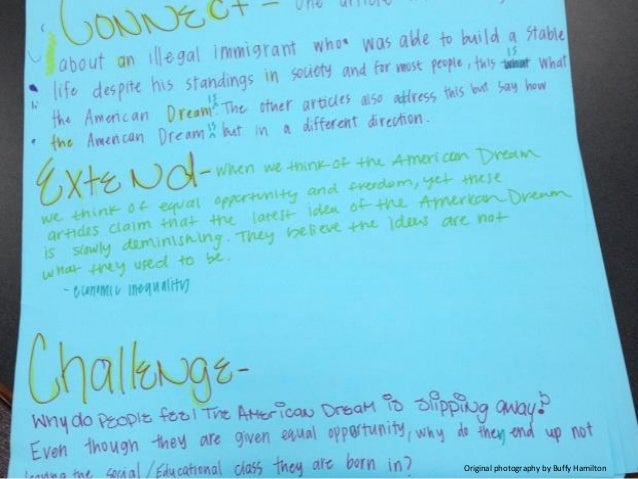 CONNECT - One article
about an illegal immigrant who was able to build a stable
life despite his standings in society and for most people, this is what
the American Dream is. The other articles also address this but say how
the American Dream is but in a different direction.
Extend - When we think of the American Dream
we think of equal opportunity and freedom, yet these
articles claim that the latest idea of the American Dream
is slowly deminishing. They believe the ideas are not
what they used to be.
- economic inequality
Challenge-
Why do people feel The American Dream is slipping away?
Even though they are given equal opportunity, why do they end up not
leaving the social/Educational class they are born in?
Original photography by Buffy Hamilton